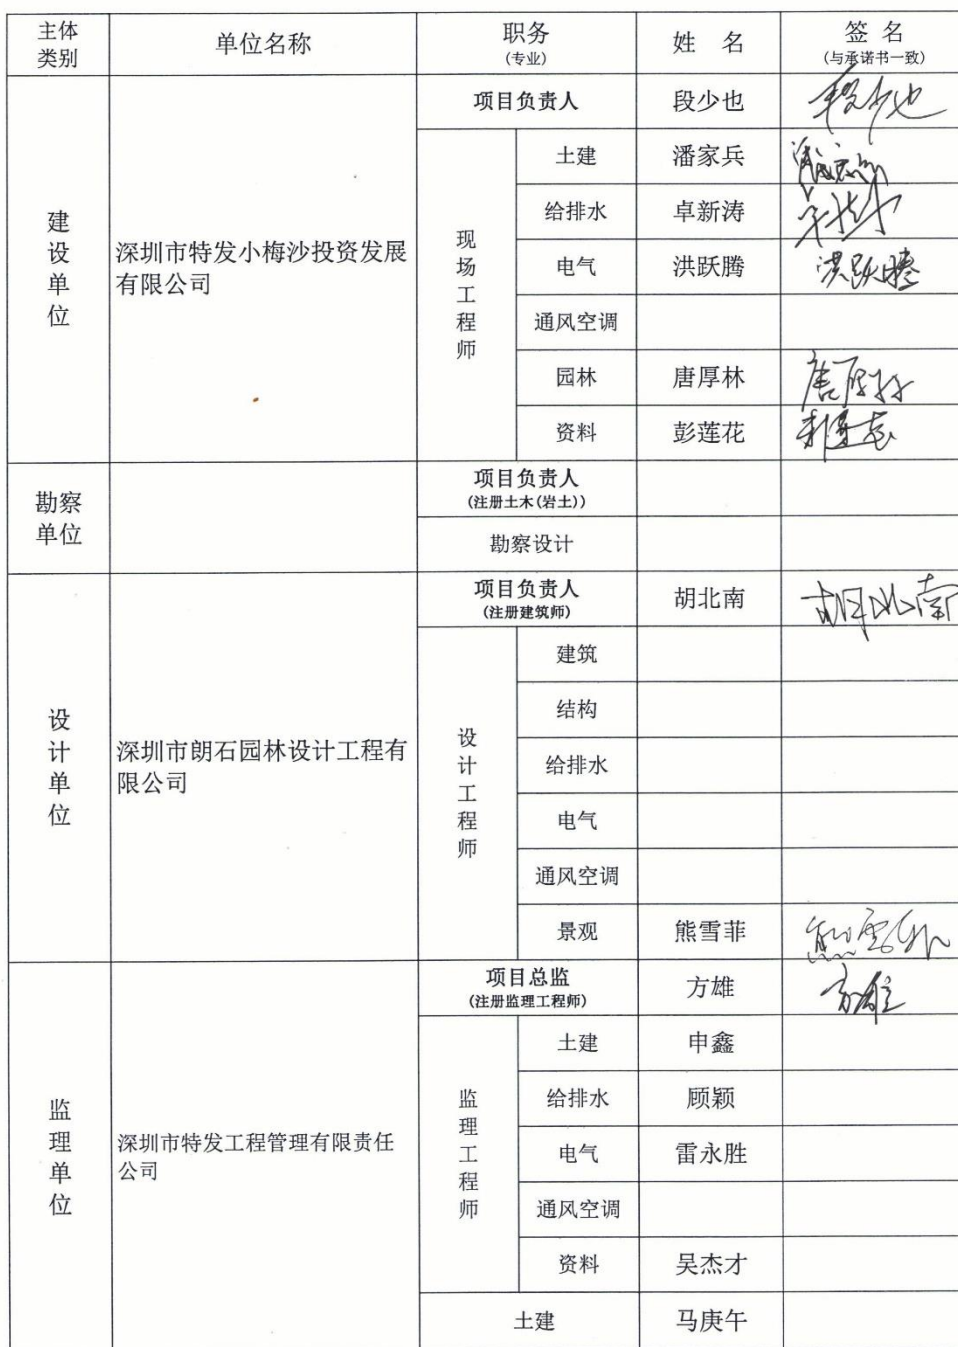 主体类别 单位名称 职务(专业) 姓 名 签 名(与承诺书一致)
建设单位 深圳市特发小梅沙投资发展有限公司 项目负责人 段少也 段少也
现场工程师 土建 潘家兵
给排水 卓新涛
电气 洪跃腾 洪跃腾
通风空调
园林 唐厚林 唐厚林
资料 彭莲花 彭莲花
勘察单位 项目负责人(注册土木(岩土))
勘察设计
设计单位 深圳市朗石园林设计工程有限公司 项目负责人(注册建筑师) 胡北南 胡北南
设计工程师 建筑
结构
给排水
电气
通风空调
景观 熊雪菲 熊雪菲
监理单位 深圳市特发工程管理有限责任公司 项目总监(注册监理工程师) 方雄 方雄
监理工程师 土建 申鑫
给排水 顾颖
电气 雷永胜
通风空调
资料 吴杰才
土建 马庚午